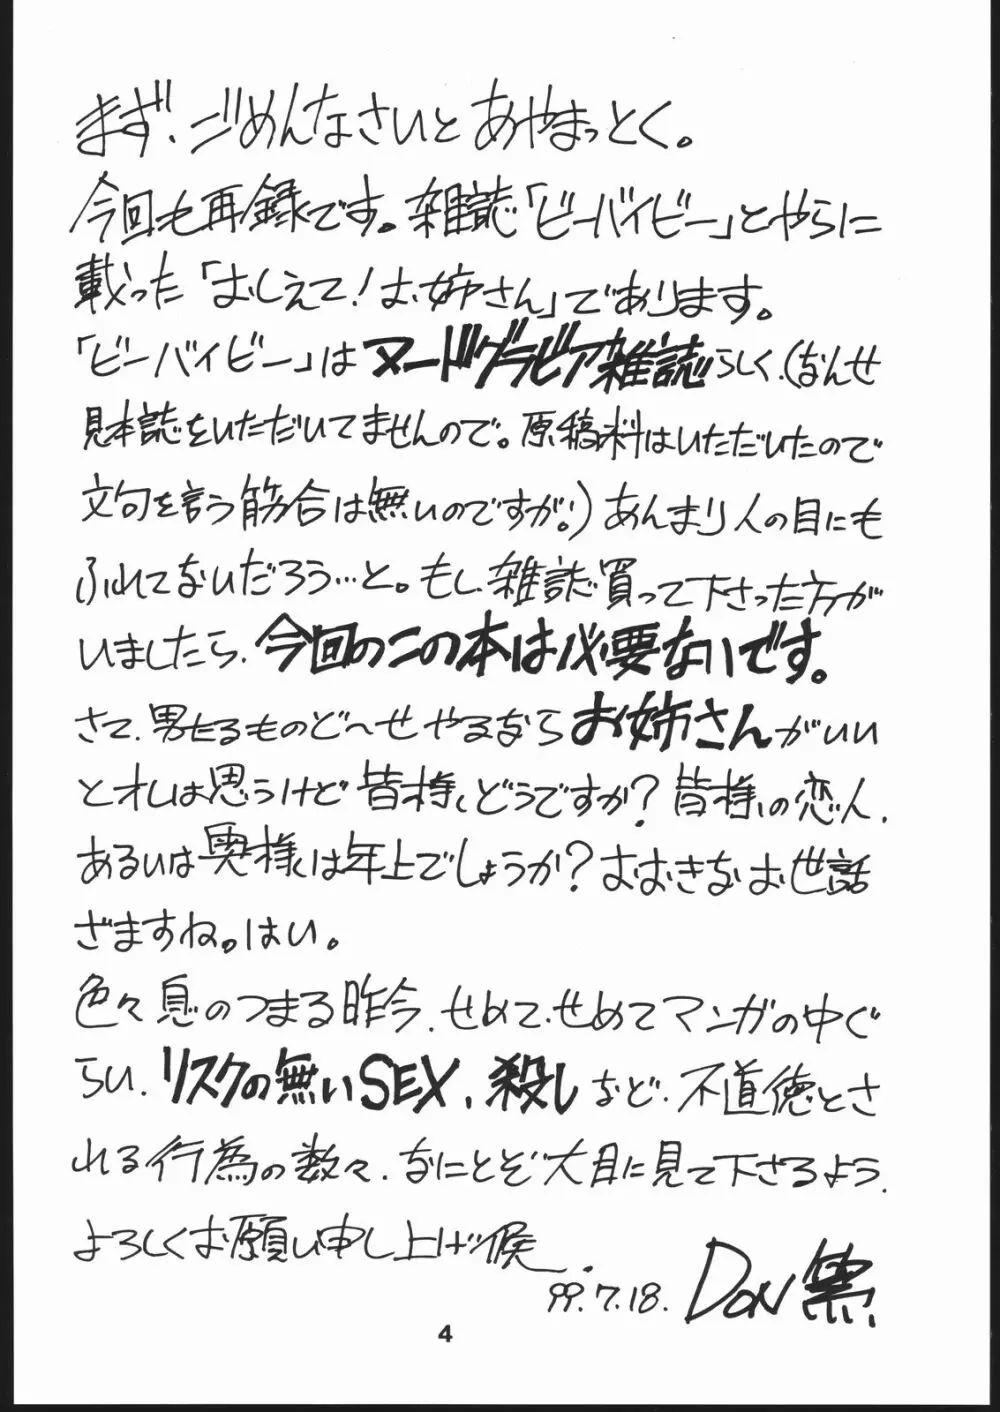 まず、ゴめんなさいとあやまっとく。
今回も再録です。雑誌「ビーバイビー」とやらに
載った「おしえて!お姉さん」であります。
「ビーバイビー」はヌードグラビア雑誌らしく、(なんせ
見本誌をいただいてませんので。原稿料はいただいたので
文句を言う筋合は無いのですが。)あんまり人の目にも
ふれてないだろう…と。もし、雑誌買って下さった方が
いましたら、今回のこの本は必要ないです。
さて、男たるものど〜せやるならお姉さんがいい
とオレは思うけど皆様、どうですか?皆様の恋人、
あるいは奥様は年上でしょうか?おおきなお世話
ざますね。はい。
色々息のつまる昨今、せめて、せめてマンガの中ぐ
らい、リスクの無いSEX、殺しなど、不道徳とさ
れる行為の数々、なにとぞ大目に見て下さるよう、
よろしくお願い申し上げ候。
99.7.18.
DON黒
4